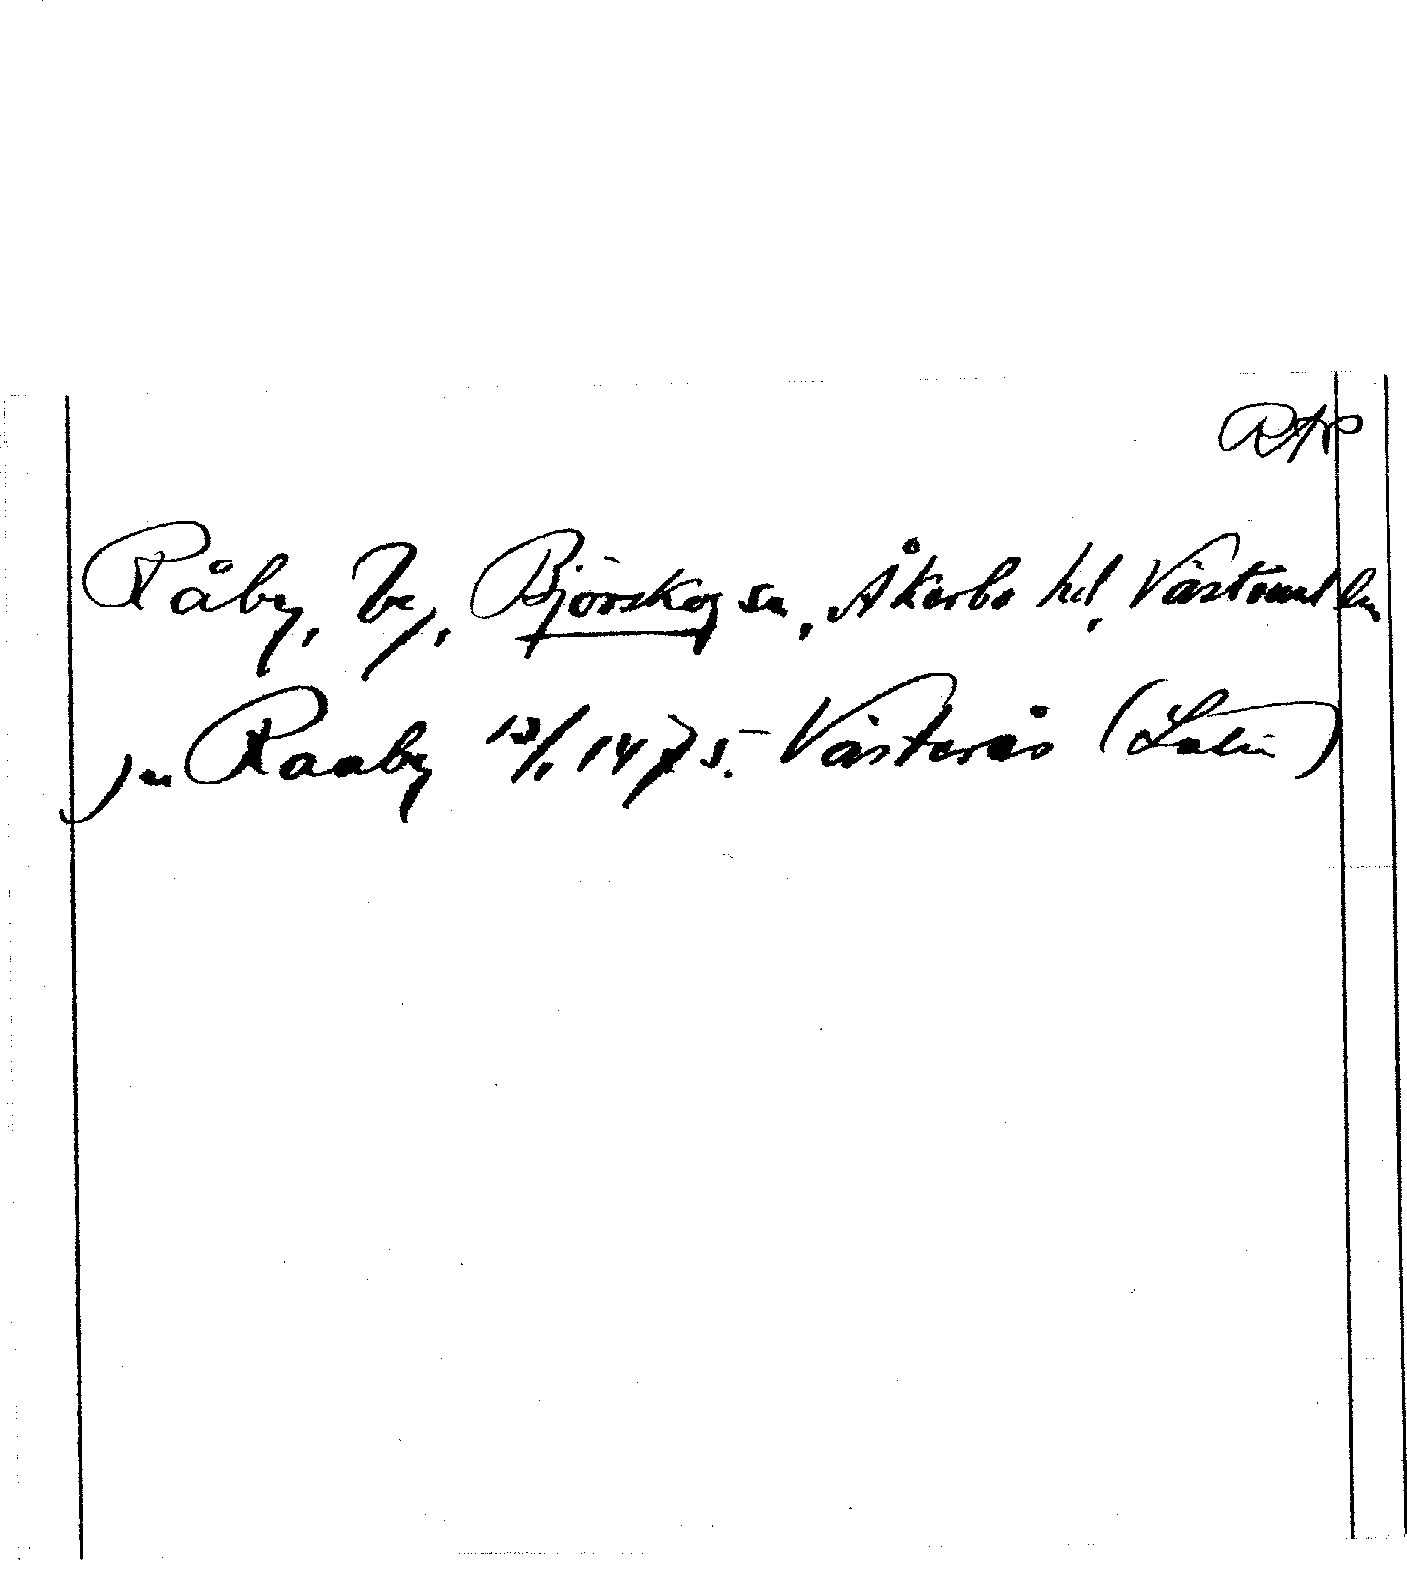 RAP
Råby, by, Björskog sn, Åkerbo hd, Västmanl län
jn Raaby 13/1 1475. Västerås (Latin)